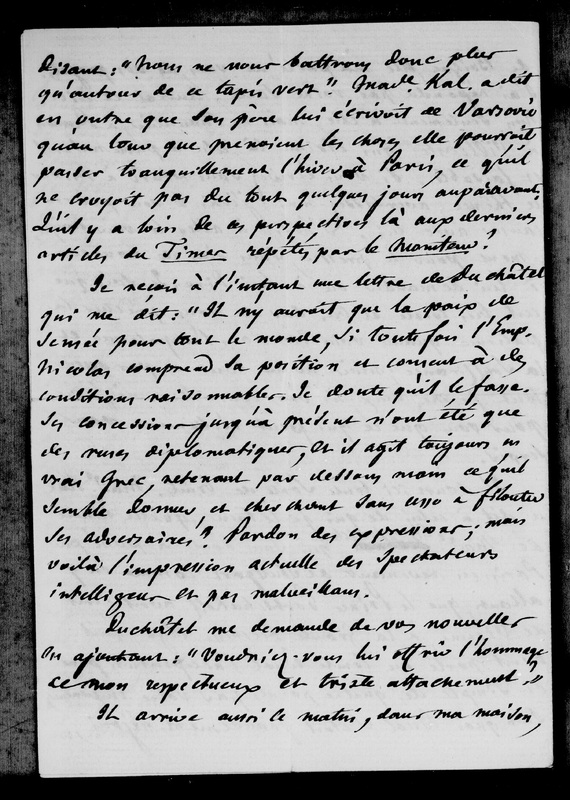 disant : "Nous ne nous battrons donc plus
qu'autour de ce tapis vert". Made. Kal. a dit
en outre que son père lui écrivoit de Varsovie
qu'au tour que prenoient les choses elle pourrait
passer tranquillement l'hiver à Paris, ce qu'il
ne croyoit pas du tout quelques jours auparavant.
Qu'il y a loin de ces perspectives là aux derniers
articles du Times répétés par le Moniteur ?
Je reçois à l'instant une lettre de Duchâtel
qui me dit : "Il n'y aurait que la paix de
sensée pour tout le monde, si toutefois l'Emp.
Nicolas comprend sa position et consent à des
conditions raisonnables. Je doute qu'il le fasse.
Ses concessions jusqu'à présent n'ont été que
des ruses diplomatiques, et il agit toujours en
vrai Grec, retenant par dessous main ce qu'il
semble donner, et cherchant sans cesse à filouter
ses adversaires". Pardon des expressions ; mais
voilà l'impression actuelle des spectateurs
intelligens et pas malveillans.
Duchâtel me demande de vos nouvelles
en ajoutant : "Voudriez-vous lui offrir l'hommage
de mon respectueux et triste attachement ?"
Il arrive aussi ce matin, dans ma maison,